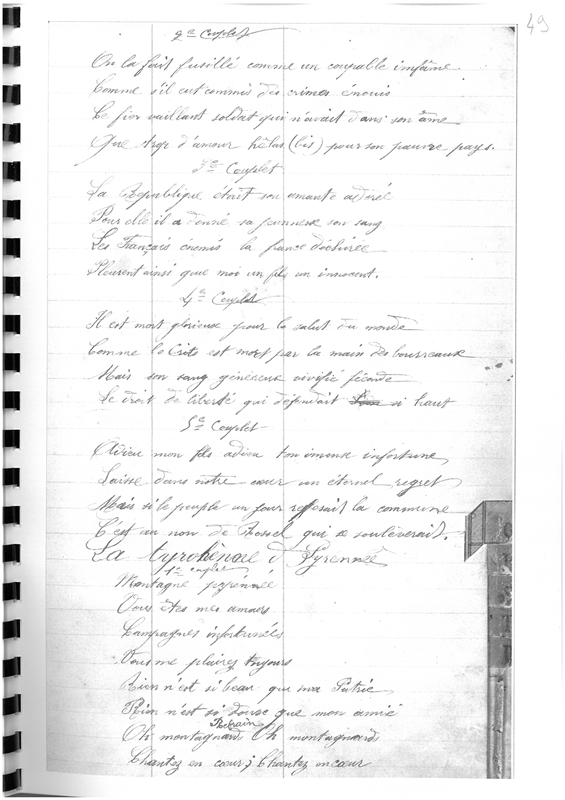 49
2e Couplet
On la fait fusillé comme un coupable infâme
Comme s'il eut commis des crimes énouis
Ce fier vaillant soldat qui n'avait dans son âme
Que trop d'amour hélas (bis) pour son pauvre pays.
3e Couplet
La République était son amante adorée
Pour elle il a donné sa jeunnesse son sang
Les Français énemis la france déchirée
Pleurent ainsi que moi un fils un innocent.
4e Couplet
Il est mort glorieux pour le salut du monde
Comme le Crits est mort par la main des bourreaux
Mais son sang généreux vivifie féconde
Le droit de liberté qui défendait si haut
5e Couplet
Adieu mon fils adieu ton imense infortune
Laisse dans notre cœur un éternel regret
Mais si le peuple un jour refesait la commune
C'est au nom de Rossel qui se soulèverait.
La tyrolienne d Pyrennée
1e couplet
Montagne pyrénnée
Vous êtes mes amours
Campagnes infortunées
Vous me plairez toujours
Rien n'est si beau que ma Patrie
Rien n'est si doux que mon amie
Refrain
Oh montagnards Oh montagnards
Chantez en cœur ; Chantez en cœur